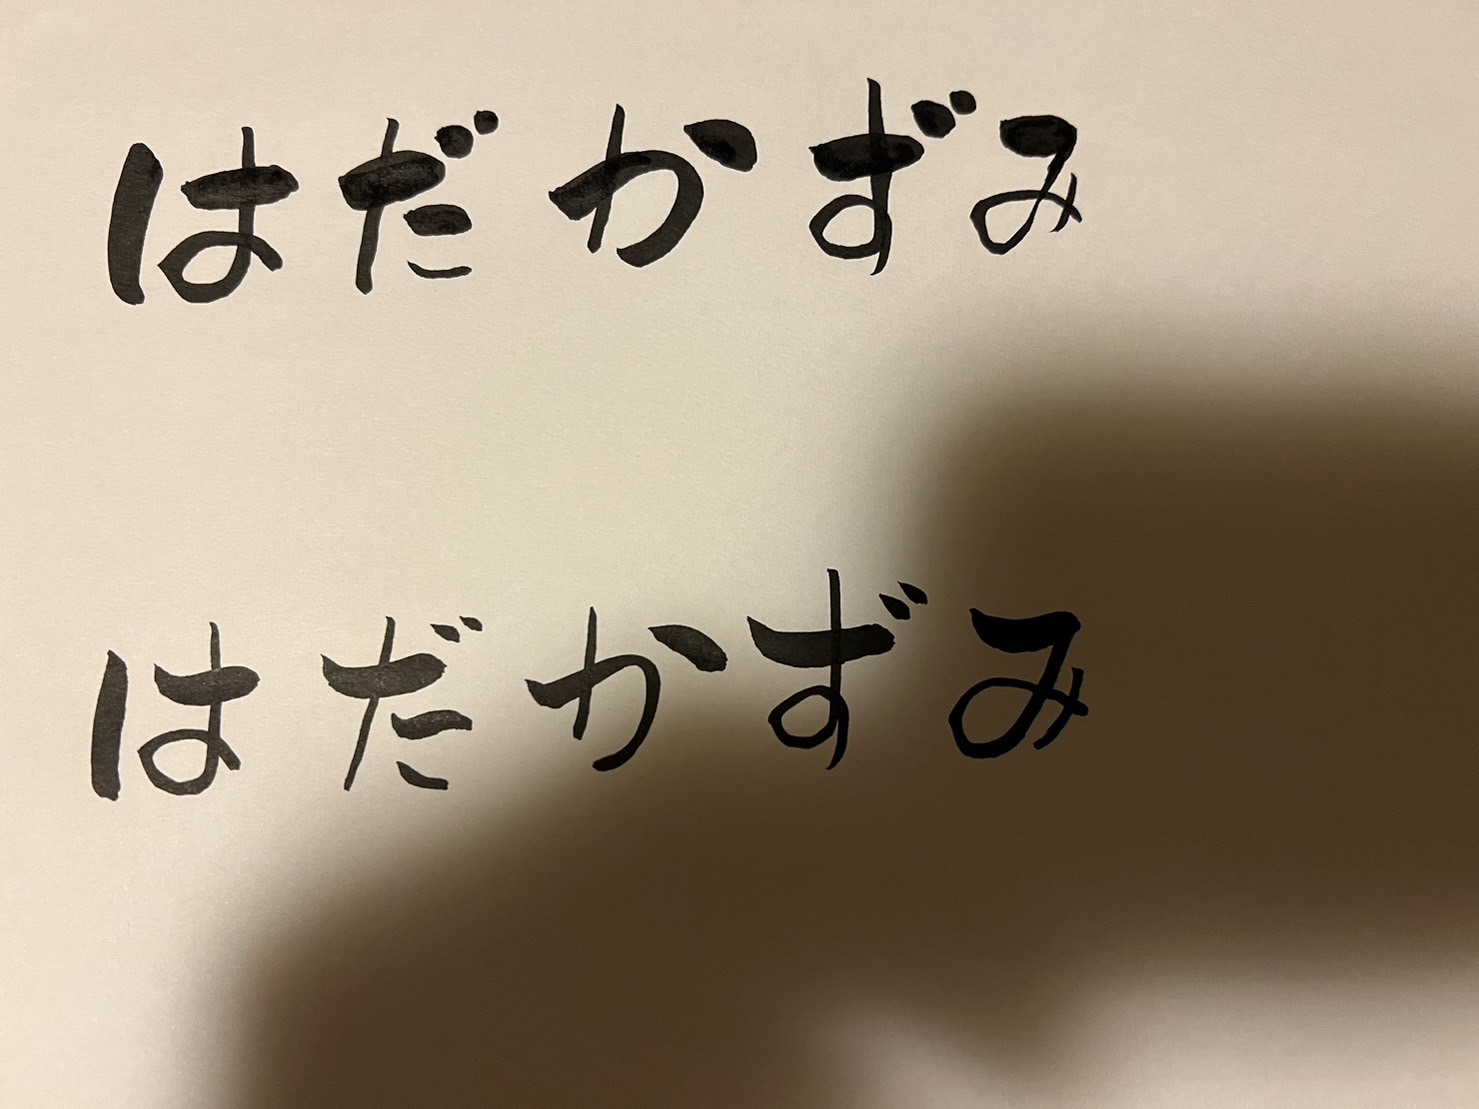 はだかずみ
はだかずみ